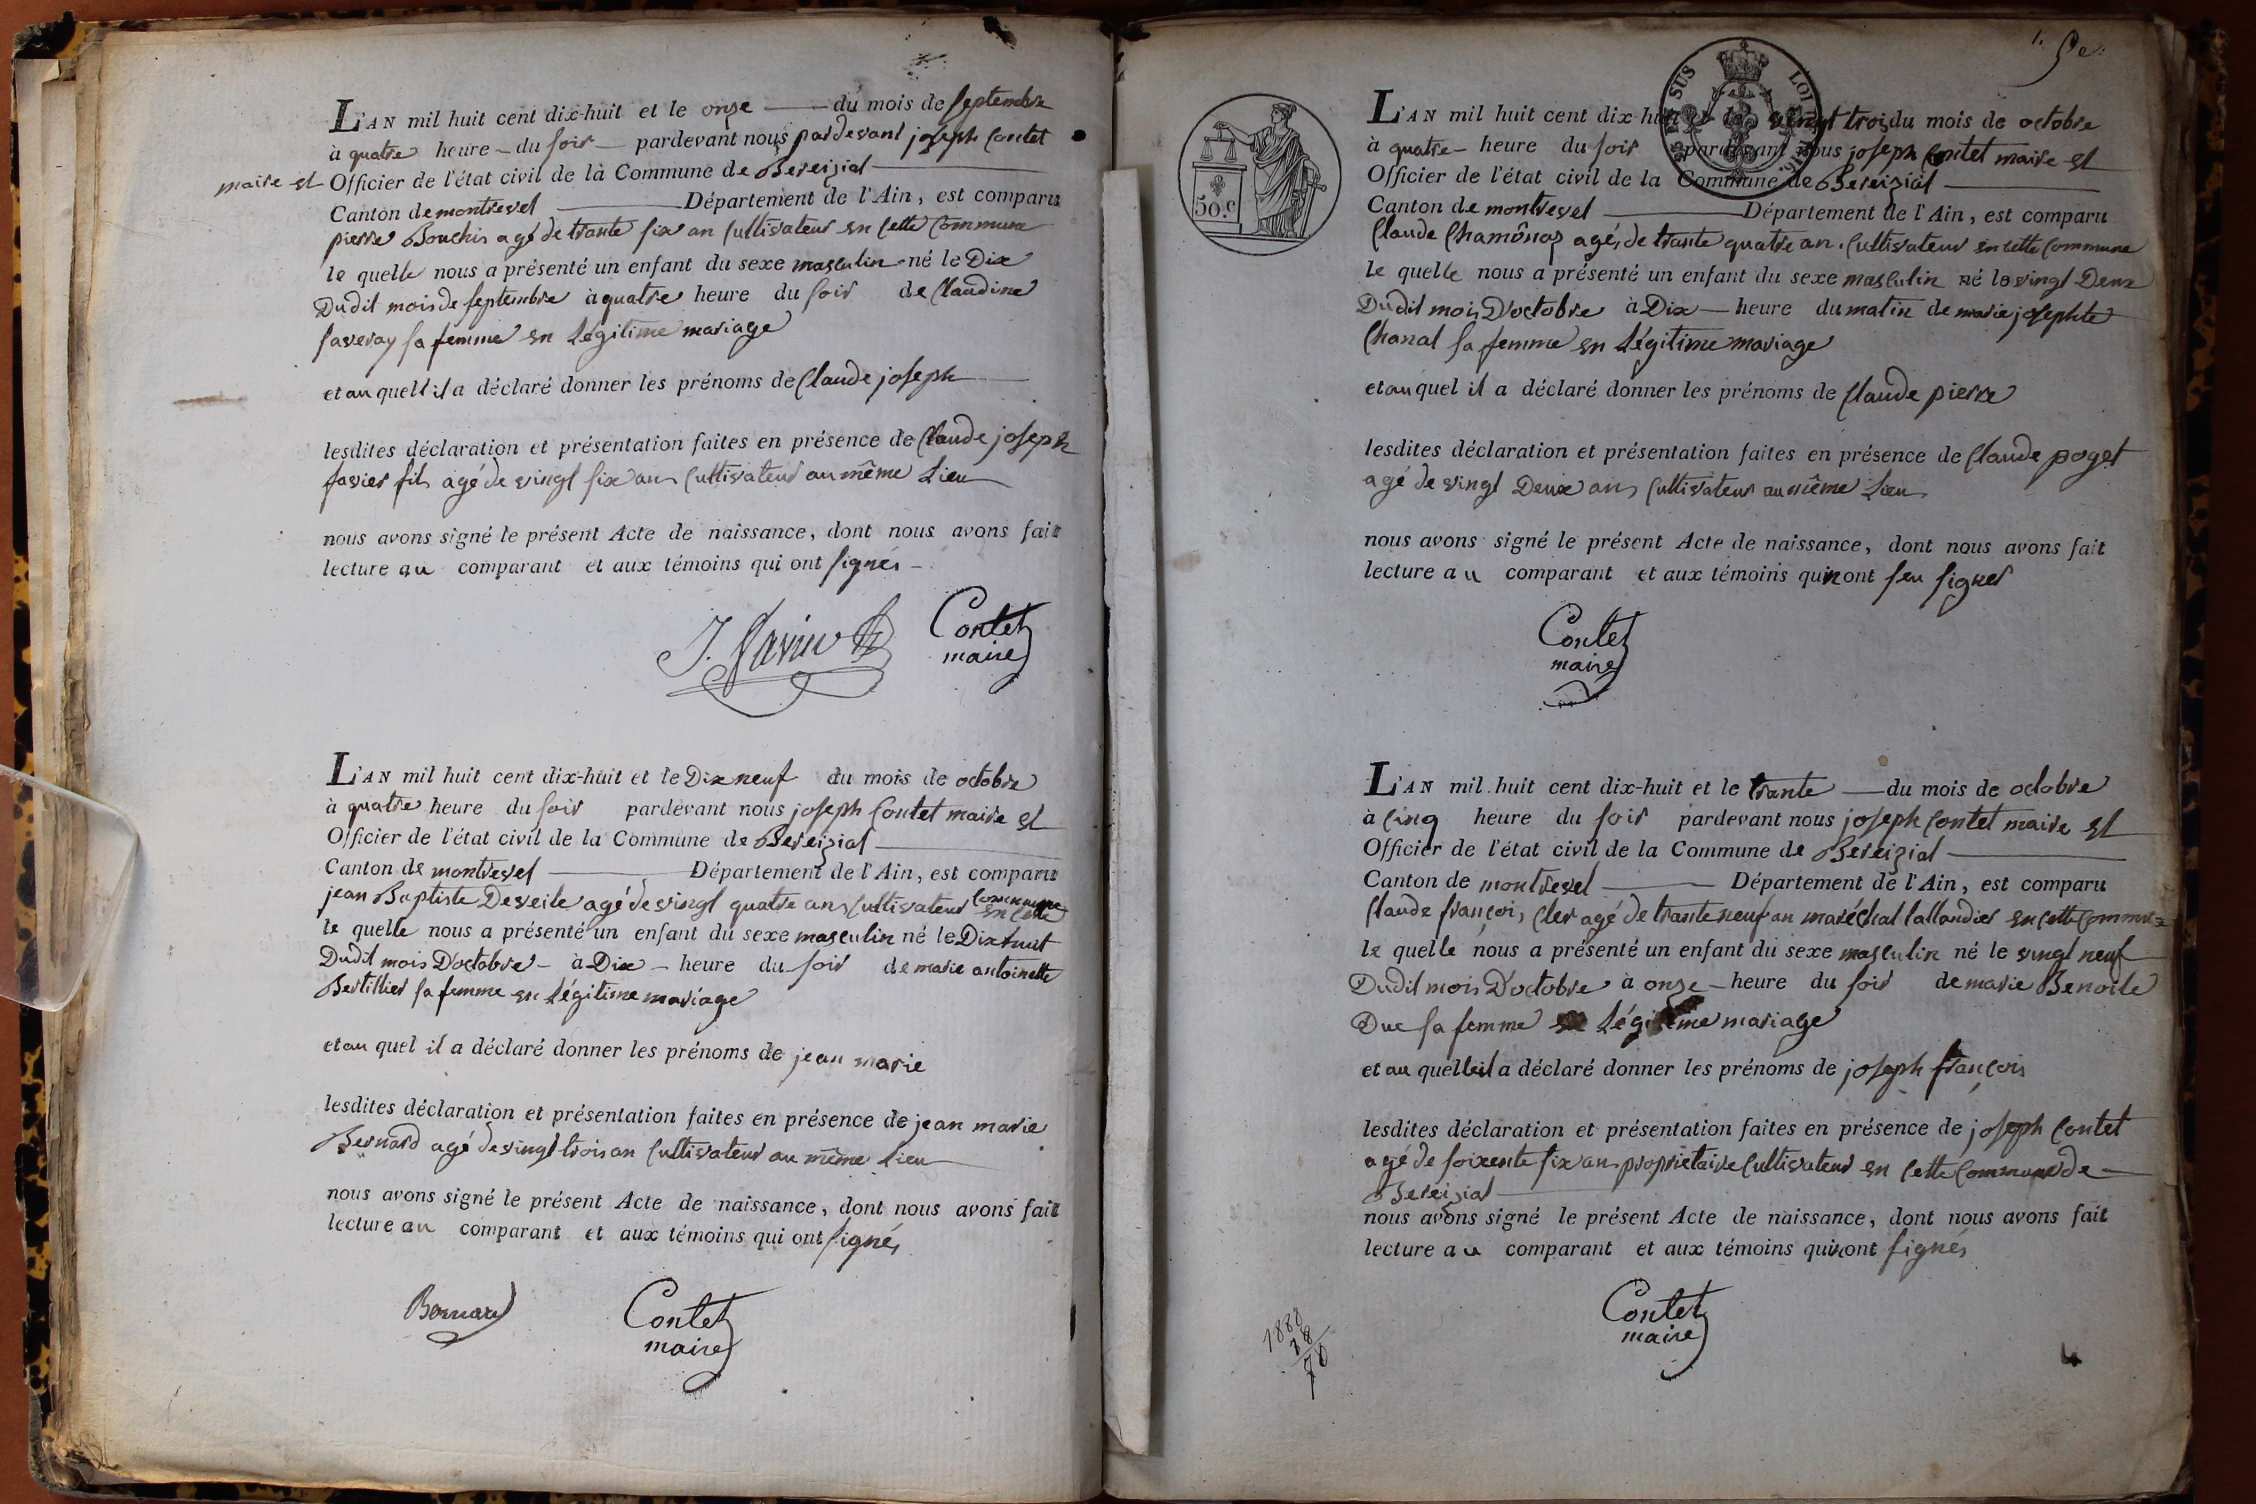 L'AN mil huit cent dix-huit et le onze du mois de septembre
à quatre heure du soir pardevant nous pardevant joseph Contet
maire et Officier de l'état civil de la Commune de Bereizial
Canton de montrevel Département de l'Ain, est comparu
pierre Bouchis agé de trante six an Cultivateur en Cette Commune
le quelle nous a présenté un enfant du sexe masculin né le Dix
Dudit mois de septembre à quatre heure du soir de Claudine
saveray sa femme en Légitime mariage
et au quell il a déclaré donner les prénoms de Claude joseph
lesdites déclaration et présentation faites en présence de Claude joseph
favier fils agé de vingt six ans Cultivateur au même Lieu
nous avons signé le présent Acte de naissance, dont nous avons fait
lecture au comparant et aux témoins qui ont signés
J. favier
Contet
maire
L'AN mil huit cent dix-huit et le Dix neuf du mois de octobre
à quatre heure du soir pardevant nous joseph Contet maire et
Officier de l'état civil de la Commune de Bereizial
Canton de montrevel Département de l'Ain, est comparu
jean Baptiste Deveile agé de vingt quatre ans Cultivateur en Cette Commune
le quelle nous a présenté un enfant du sexe masculin né le Dix huit
Dudit mois D'octobre à Dix heure du soir de marie antoinette
Bertillier sa femme en Légitime mariage
et au quel il a déclaré donner les prénoms de jean marie
lesdites déclaration et présentation faites en présence de jean marie
Bernard agé de vingt trois an Cultivateur au même Lieu
nous avons signé le présent Acte de naissance, dont nous avons fait
lecture au comparant et aux témoins qui ont signés
Bernard
Contet
maire
SUS LOI
50.c
L'AN mil huit cent dix-huit et le vingt trois du mois de octobre
à quatre heure du soir pardevant nous joseph Contet maire et
Officier de l'état civil de la Commune de Bereizial
Canton de montrevel Département de l'Ain, est comparu
Claude Chamônaz agés de trante quatre an Cultivateur en cette Commune
le quelle nous a présenté un enfant du sexe masculin né le vingt Deux
Dudit mois D'octobre à Dix heure du matin de marie josephte
Chanal sa femme en Légitime mariage
et au quel il a déclaré donner les prénoms de Claude pierre
lesdites déclaration et présentation faites en présence de Claude poget
agé de vingt Deux ans Cultivateur au même Lieu
nous avons signé le présent Acte de naissance, dont nous avons fait
lecture au comparant et aux témoins qui nont seu signer
Contet
maire
L'AN mil huit cent dix-huit et le trante du mois de octobre
à Cinq heure du soir pardevant nous joseph Contet maire et
Officier de l'état civil de la Commune de Bereizial
Canton de montrevel Département de l'Ain, est comparu
Claude françois Cler agé de trante neuf an maréchal tallandier en cette Commune
le quelle nous a présenté un enfant du sexe masculin né le vingt neuf
Dudit mois D'octobre à onze heure du soir de marie Benoite
Duc sa femme en Légitime mariage
et au quell il a déclaré donner les prénoms de joseph françois
lesdites déclaration et présentation faites en présence de joseph Contet
agé de soixente six ans propriétaire Cultivateur en Cette Commune de
Bereizial
nous avons signé le présent Acte de naissance, dont nous avons fait
lecture au comparant et aux témoins qui nont signés
Contet
maire
1888
18
70